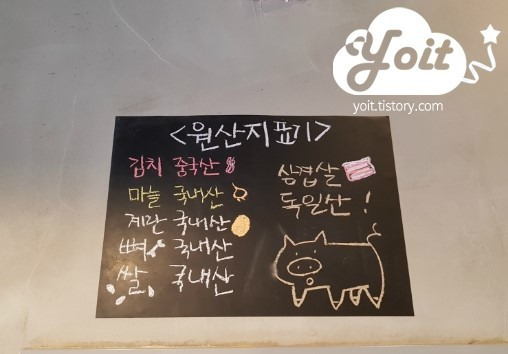 Yoit
yoit.tistory.com
<원산지표기>
김치 중국산
마늘 국내산
계란 국내산
뼈 국내산
쌀 국내산
삼겹살
독일산!